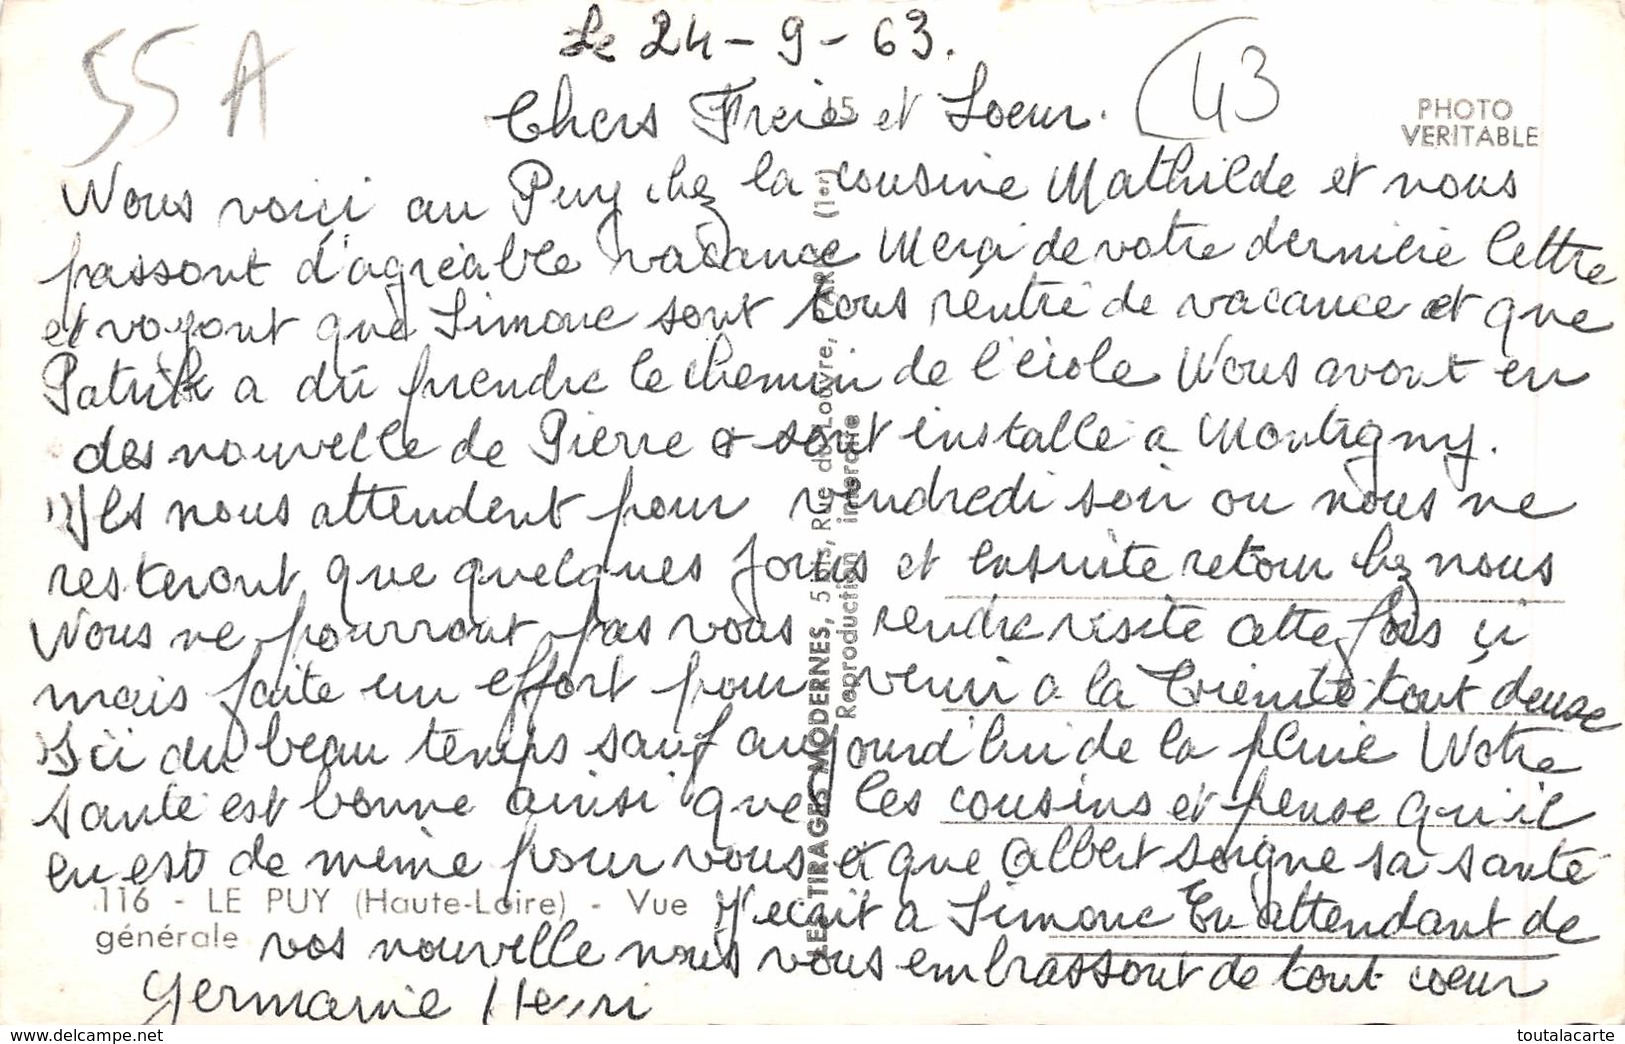 55 A
Le 24-9-63.
Chers Freres et Soeur.
43
PHOTO
VERITABLE
Nous voici au Puy chez la cousine Mathilde et nous
passont d'agréable vacance Merci de votre derniere lettre
et voyont que Simone sont tous rentré de vacance et que
Patrik a dû prendre le chemin de l'école Nous avont eu
des nouvelle de Pierre & sont installé a Montigny.
Ils nous attendent pour vendredi soir ou nous ne
resteront que quelques jours et ensuite retour chez nous
Nous ne pourront pas vous rendre visite cette fois ci
mais faite un effort pour venir a la Trinité tout deux
Ici du beau temps sauf aujourd'hui de la pluie Notre
santé est bonne ainsi que les cousins et pense qu'il
en est de même pour vous et que Albert soigne sa santé
J'écrit a Simone En attendant de
vos nouvelle nous vous embrassont de tout coeur
Germaine Henri
116 - LE PUY (Haute-Loire) - Vue
générale
LES TIRAGES MODERNES, 5 bis, Rue du Louvre, PARIS (1er)
Reproduction interdite
www.delcampe.net
toutalacarte